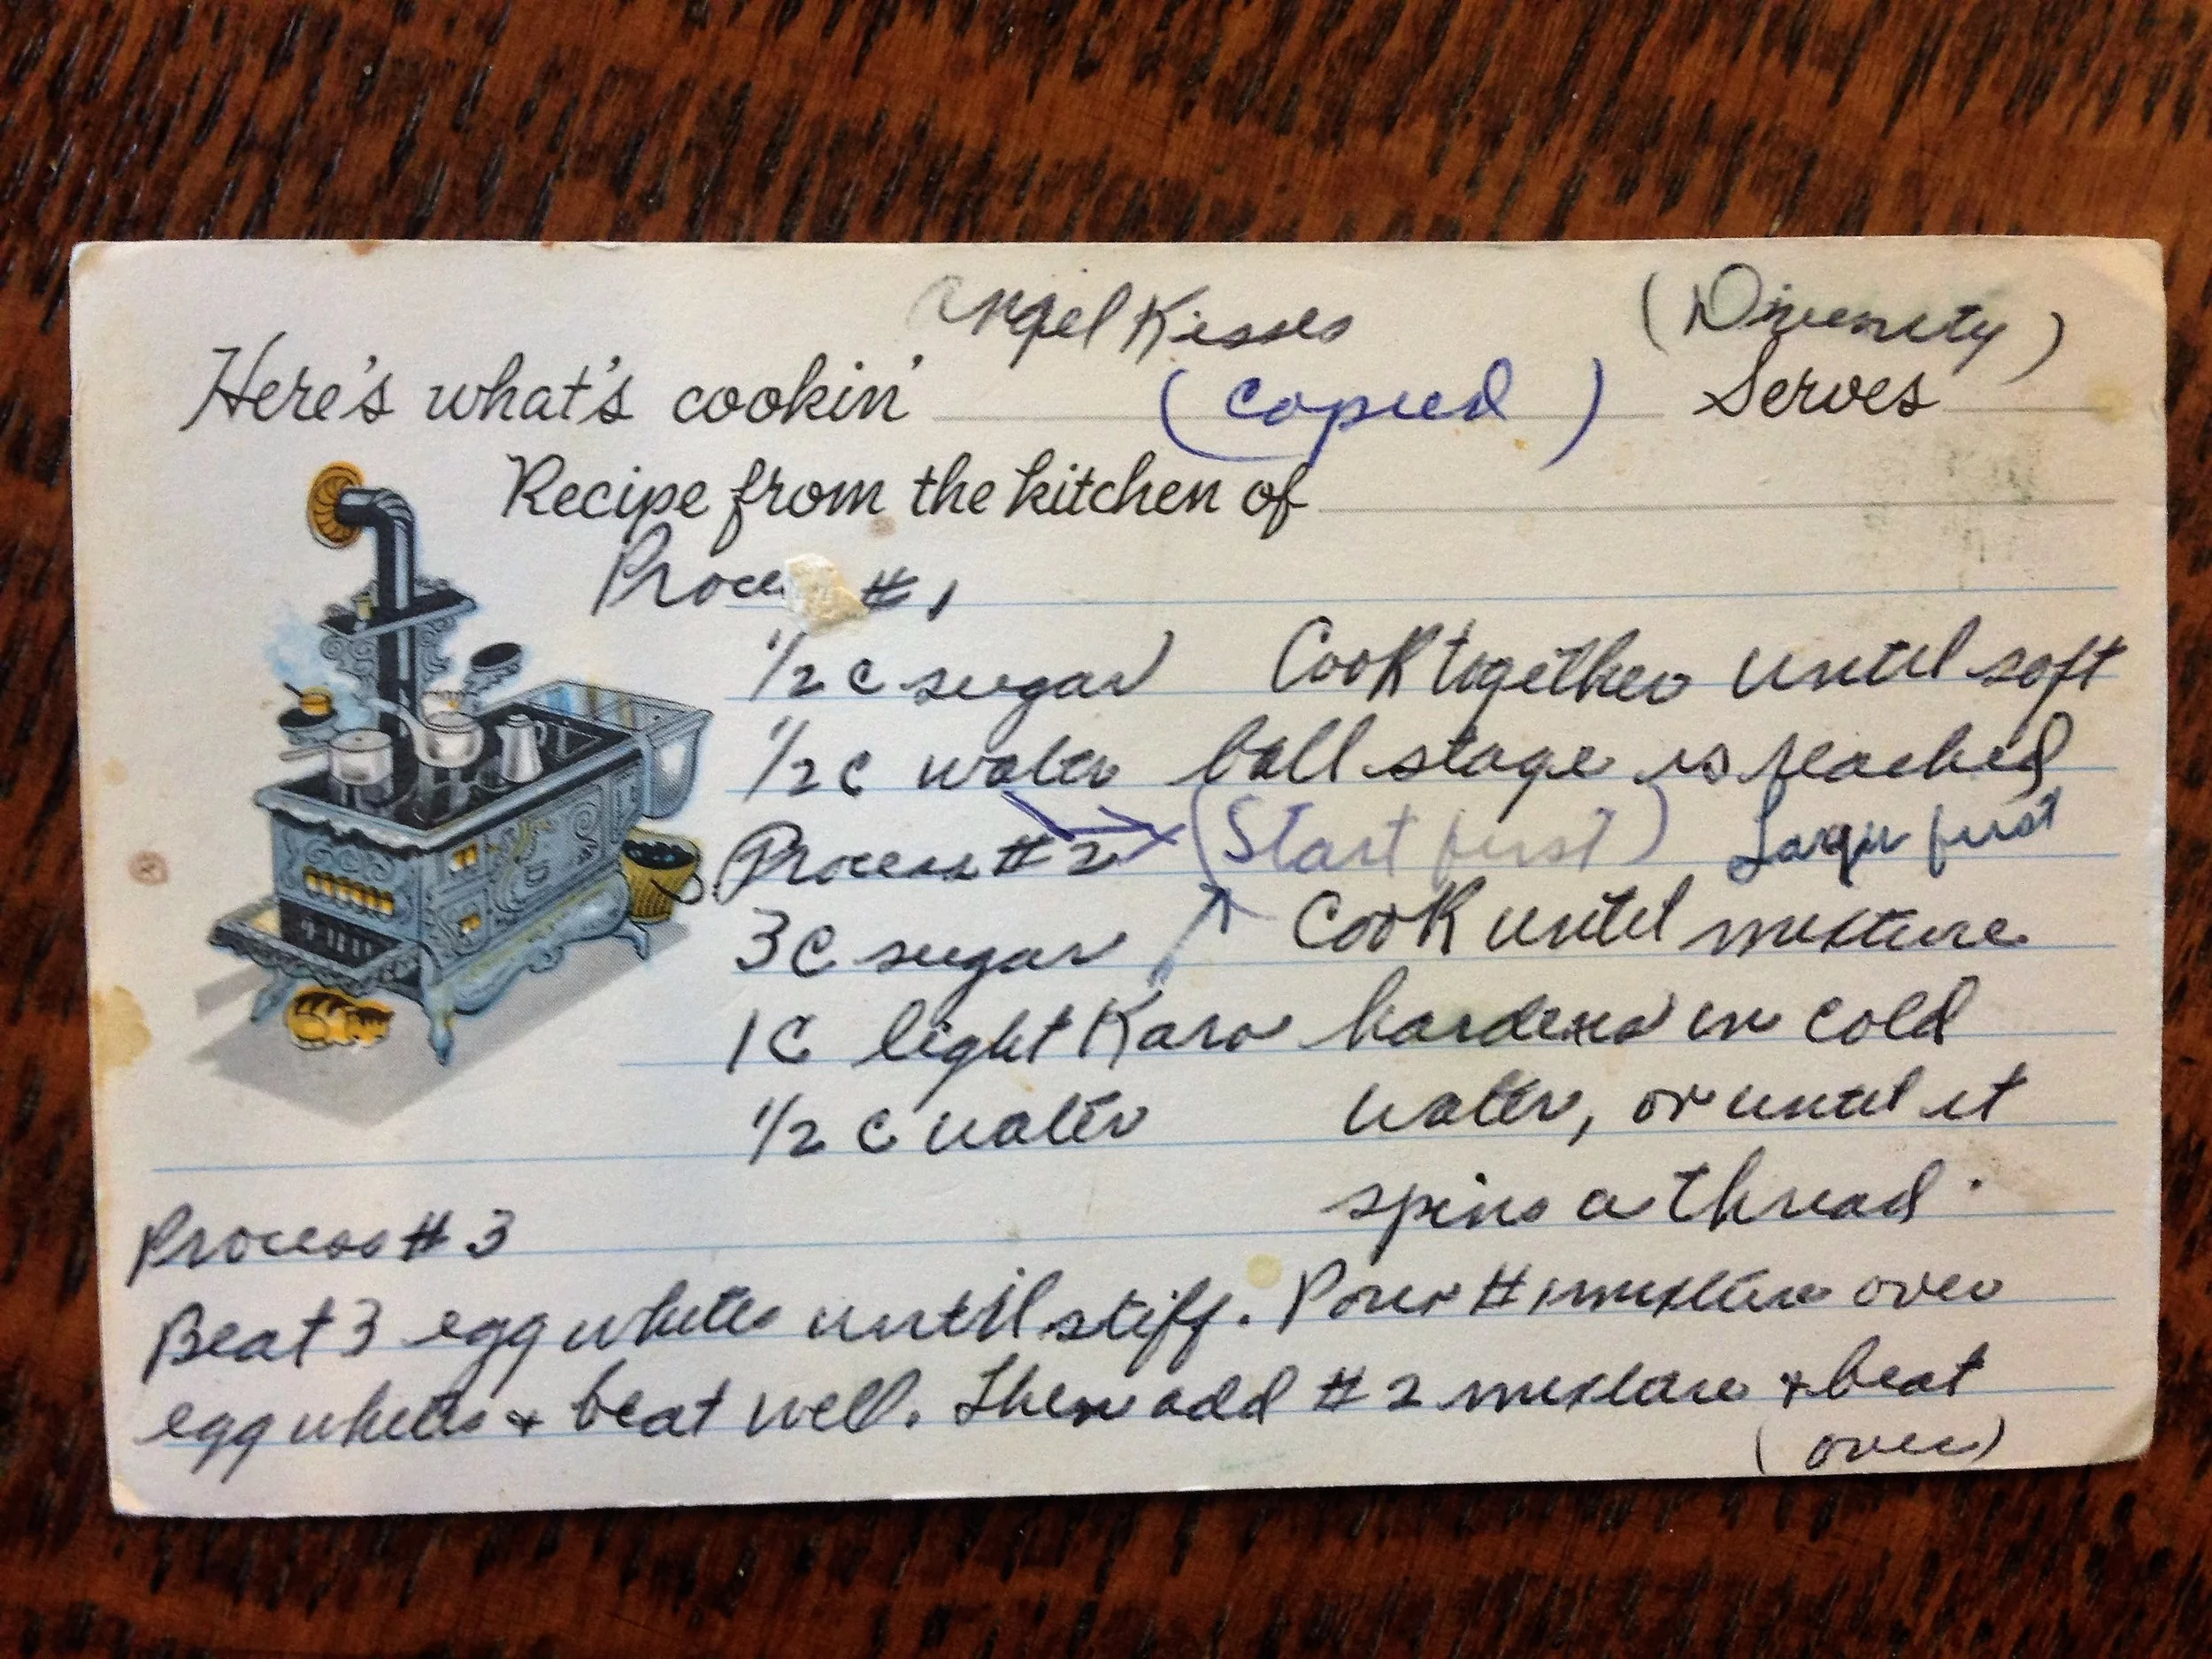 Angel Kisses (Divinity)
Here's what's cookin' (copied) Serves
Recipe from the kitchen of
Proce # 1
1/2 c sugar Cook together until soft
1/2 c water ball stage is reached
Process # 2 (Start first) Larger first
3 C sugar Cook until mixture
1 C light Karo hardens in cold
1/2 c water water, or until it
spins a thread.
Process # 3
Beat 3 egg whites until stiff. Pour # 1 mixture over
egg whites + beat well. Then add # 2 mixture + beat
(over)